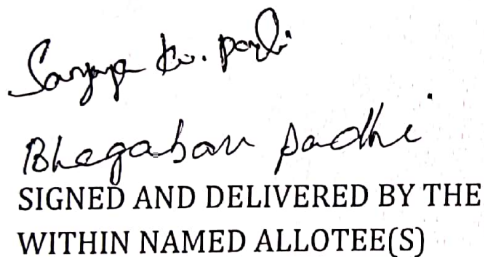 Sanjaya Ku. Padhi
Bhagaban Padhi
SIGNED AND DELIVERED BY THE
WITHIN NAMED ALLOTEE(S)